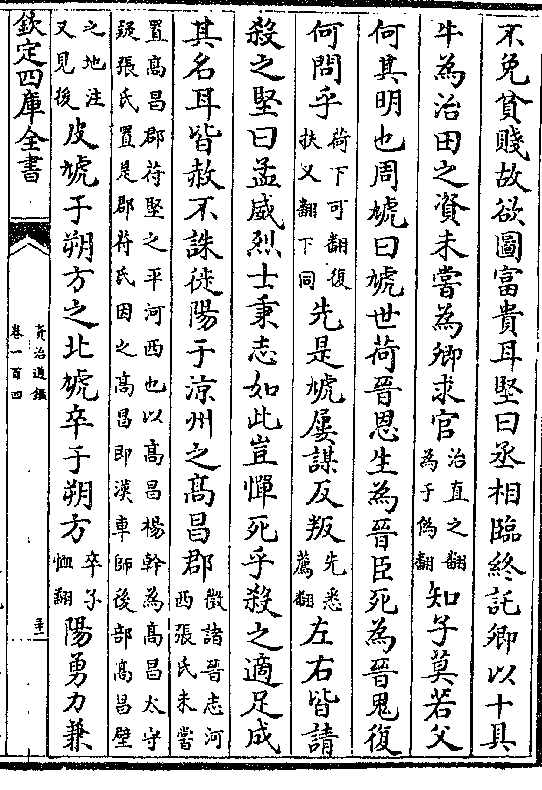 不免貧賤故欲圖富貴耳堅曰丞相臨終託卿以十具
牛為治田之資未嘗為卿求官治直之翻為于偽翻知子莫若父
何其明也周虓曰虓世荷晉恩生為晉臣死為晉鬼復
何問乎荷下可翻復扶又翻下同先是虓屢謀反叛先悉薦翻左右皆請
殺之堅曰孟威烈士秉志如此豈憚死乎殺之適足成
其名耳皆赦不誅徙陽于涼州之高昌郡徵諸晉志河西張氏未嘗
置高昌郡苻堅之平河西也以高昌楊幹為高昌太守疑張氏置是郡苻氏因之高昌即漢車師後部高昌壁
之地注又見後皮虓于朔方之北虓卒于朔方卒子恤翻陽勇力兼
欽定四庫全書
資治通鑑
卷一百四